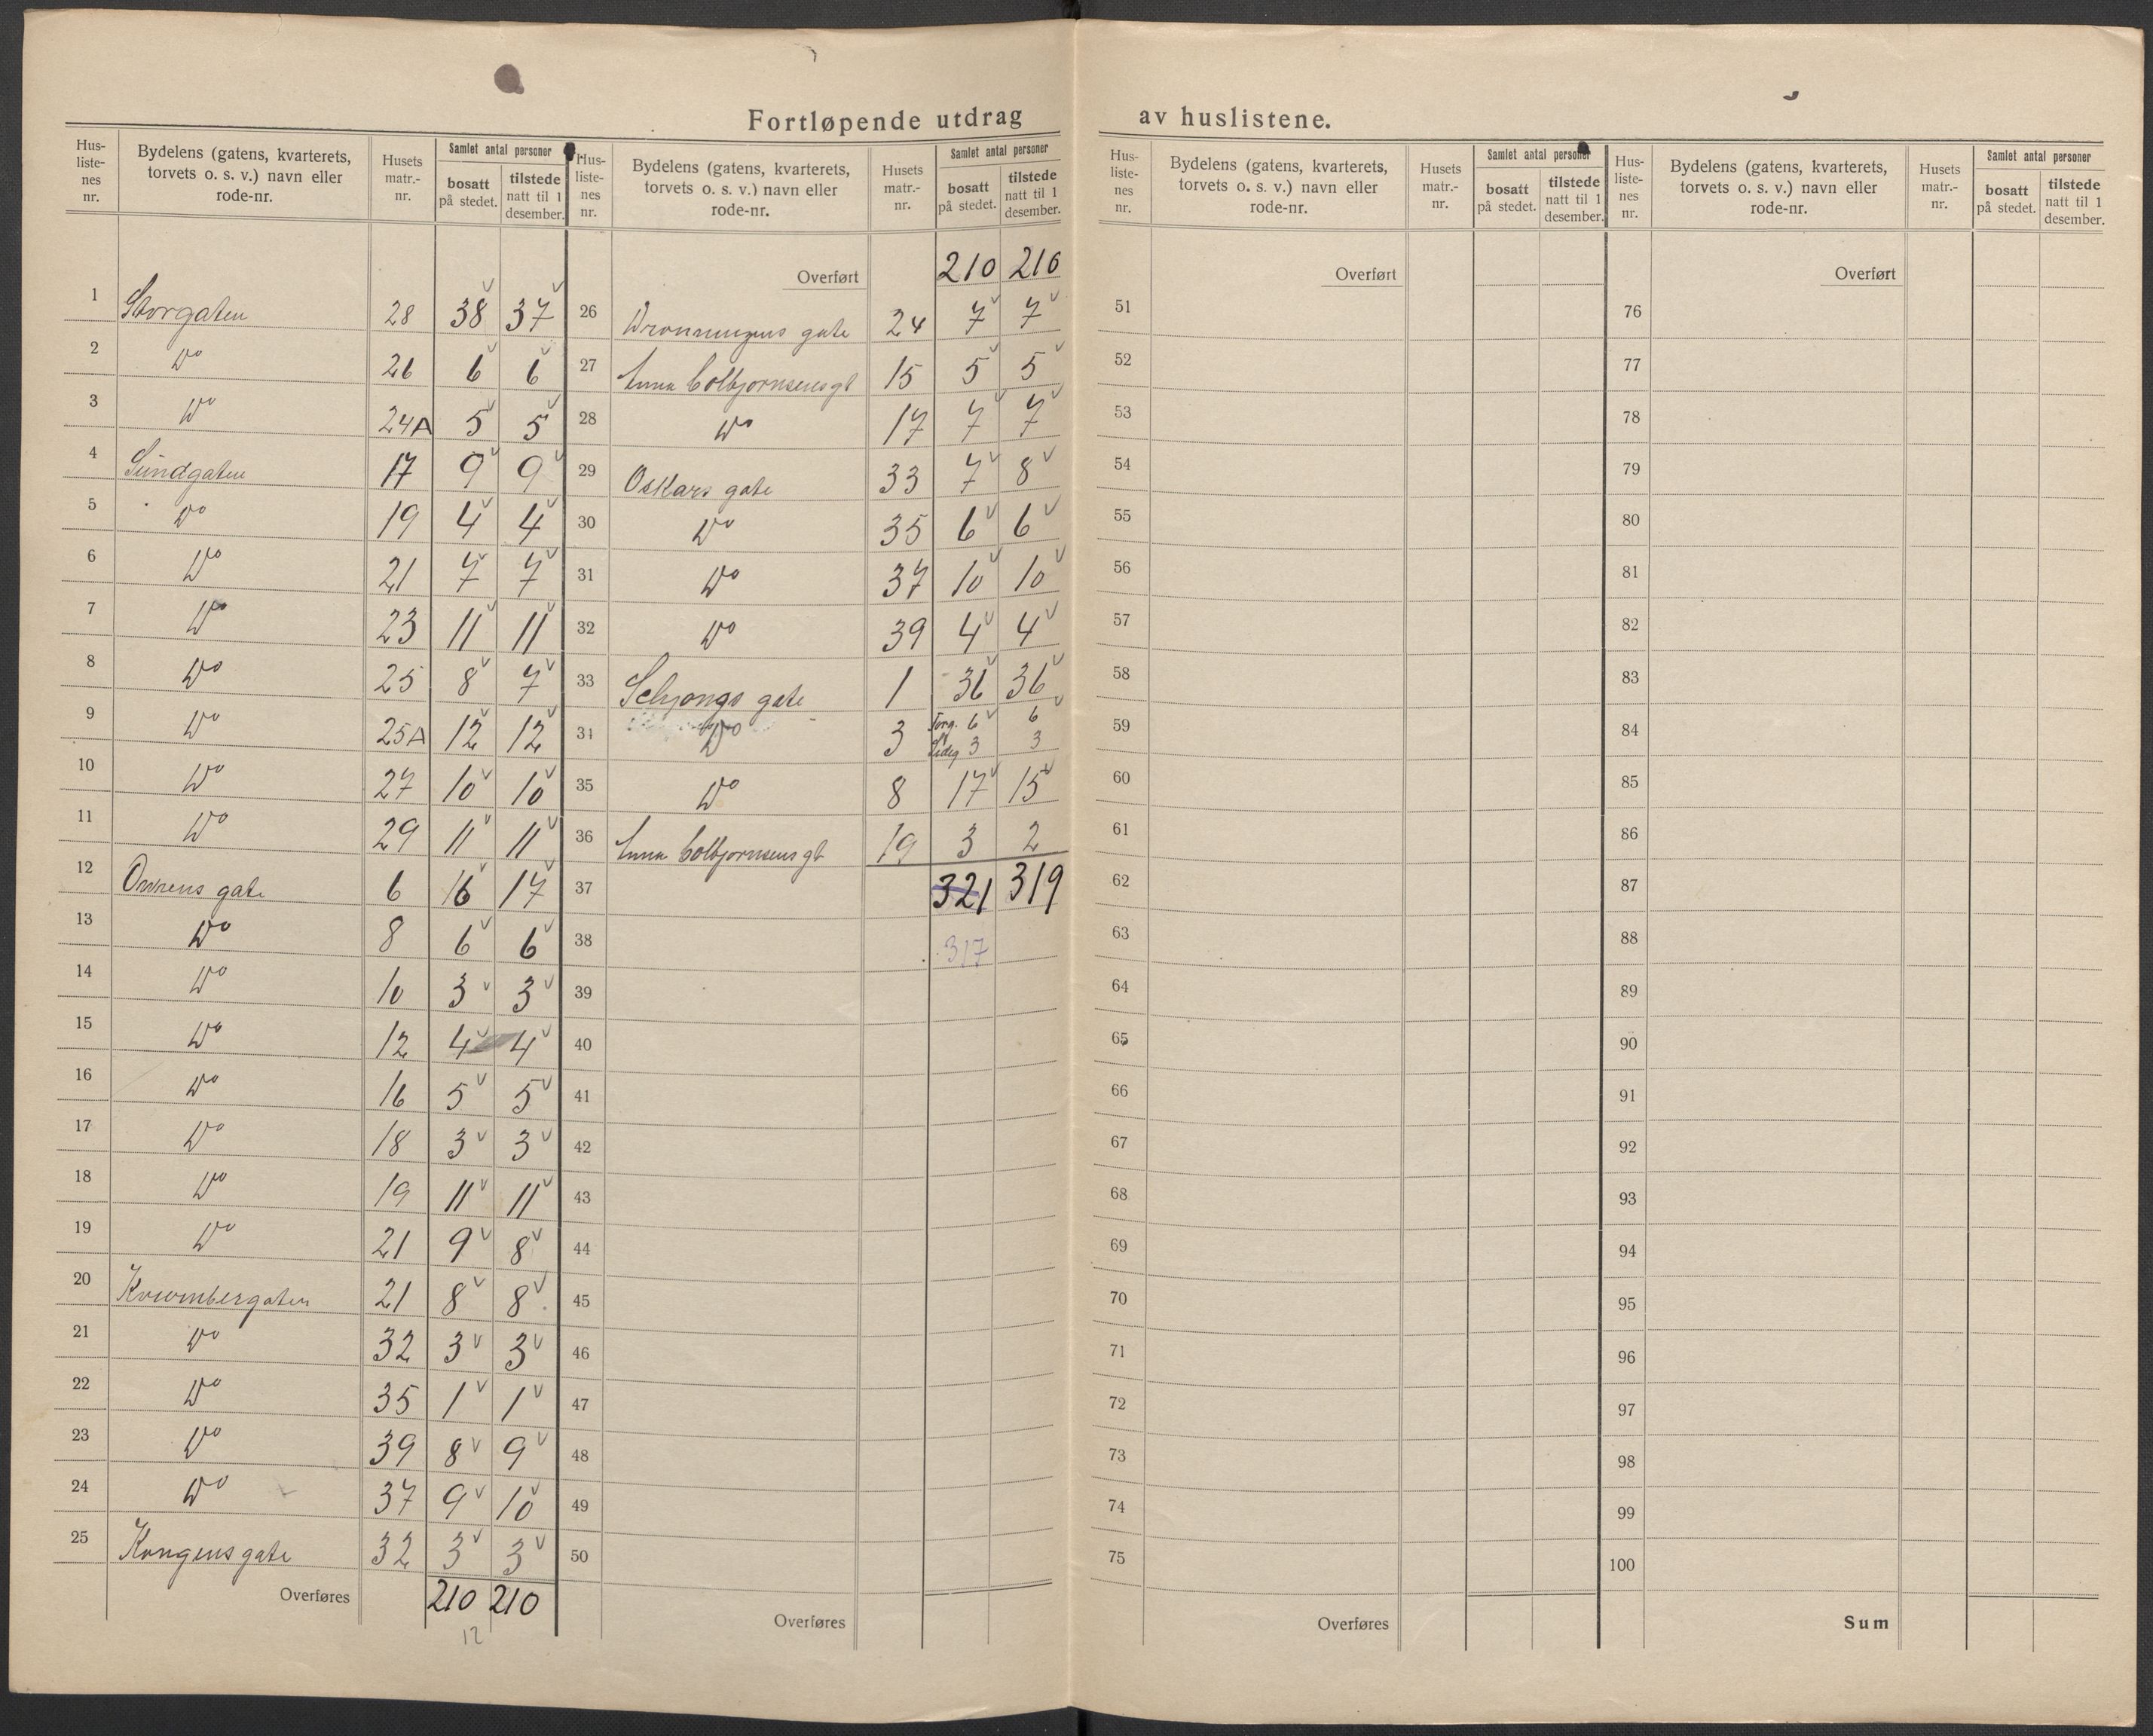 Fortløpende utdrag av huslistene.
Hus-listenes nr. | Bydelens (gatens, kvarterets, torvets o. s. v.) navn eller rode-nr. | Husets matr.-nr. | Samlet antal personer bosatt på stedet. | tilstede natt til 1 desember.
1 Storgaten 28 38 37
2 Do 26 6 6
3 Do 24A 5 5
4 Sundgaten 17 9 9
5 Do 19 4 4
6 Do 21 7 7
7 Do 23 11 11
8 Do 25 8 7
9 Do 25A 12 12
10 Do 27 10 10
11 Do 29 11 11
12 Owrens gate 6 16 17
13 Do 8 6 6
14 Do 10 3 3
15 Do 12 4 4
16 Do 16 5 5
17 Do 18 3 3
18 Do 19 11 11
19 Do 21 9 8
20 21 8 8
21 Do 32 3 3
22 Do 35 1 1
23 Do 39 8 9
24 Do 37 9 10
25 Kongens gate 32 3 3
Overføres 210 210
12
Hus-listenes nr. | Bydelens (gatens, kvarterets, torvets o. s. v.) navn eller rode-nr. | Husets matr.-nr. | Samlet antal personer bosatt på stedet. | tilstede natt til 1 desember.
Overført 210 210
26 Dronningens gate 24 7 7
27 Anna Colbjørnsens gt 15 5 5
28 Do 17 7 7
29 Oskars gate 33 7 8
30 Do 35 6 6
31 Do 37 10 10
32 Do 39 4 4
33 Schjongs gate 1 36 36
34 Do 3 6 6
3 3
35 Do 8 17 15
36 Anna Colbjørnsens gt 19 3 2
37 321 319
38 317
39
40
41
42
43
44
45
46
47
48
49
50
Overføres
Hus-listenes nr. | Bydelens (gatens, kvarterets, torvets o. s. v.) navn eller rode-nr. | Husets matr.-nr. | Samlet antal personer bosatt på stedet. | tilstede natt til 1 desember.
Overført
51
52
53
54
55
56
57
58
59
60
61
62
63
64
65
66
67
68
69
70
71
72
73
74
75
Overføres
Hus-listenes nr. | Bydelens (gatens, kvarterets, torvets o. s. v.) navn eller rode-nr. | Husets matr.-nr. | Samlet antal personer bosatt på stedet. | tilstede natt til 1 desember.
Overført
76
77
78
79
80
81
82
83
84
85
86
87
88
89
90
91
92
93
94
95
96
97
98
99
100
Sum